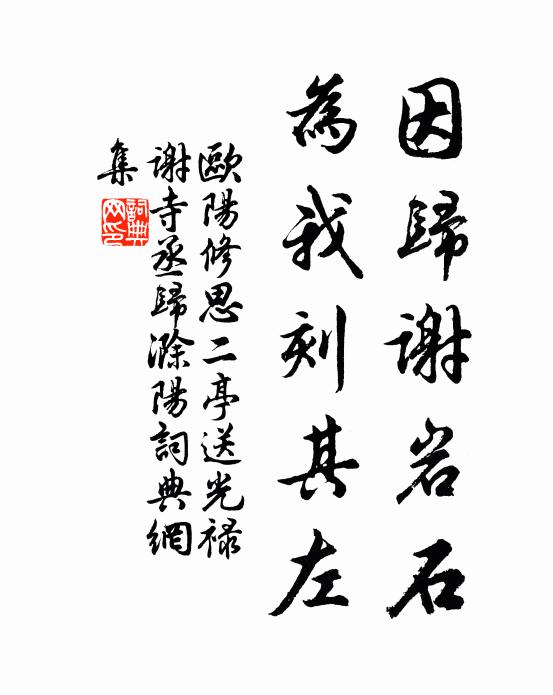 因歸謝岩石
為我刻其左
歐陽修思二亭送光禄
謝寺丞歸滁陽詞典網
集
詞典网印